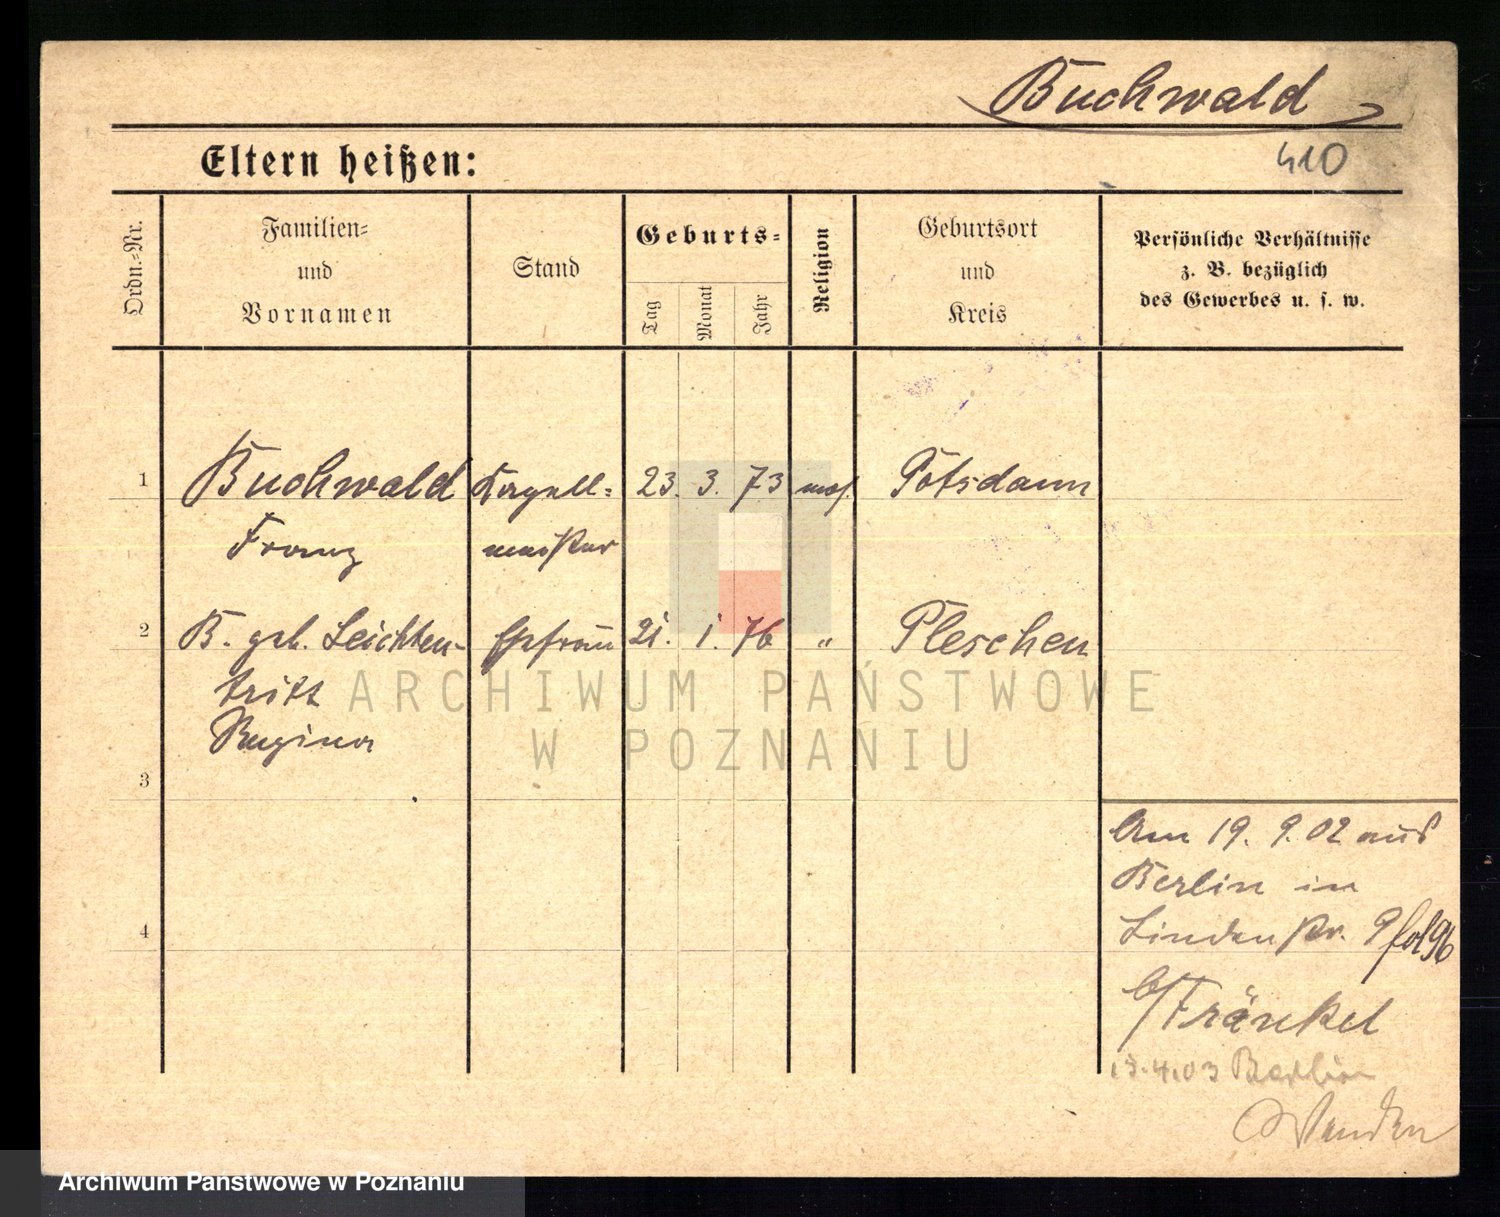 Buchwald
410
Eltern heißen:
Ordn.-Nr.
Familien-
und
Vornamen
Stand
Geburts-
Tag
Monat
Jahr
Religion
Geburtsort
und
Kreis
Persönliche Verhältnisse
z. B. bezüglich
des Gewerbes u. s. w.
1 Buchwald Kapell- 23. 3. 73 mos. Potsdam
Franz meister
2 B. geb. Leichten- Ehefrau 21. 1. 76 " Pleschen
tritt
Regina
3
4
Am 19. 9. 02 aus
Berlin in
Lindenstr. 9 fol 96
b/Fränkel
4.03 Berlin
Wenden
ARCHIWUM PAŃSTWOWE
W POZNANIU
Archiwum Państwowe w Poznaniu